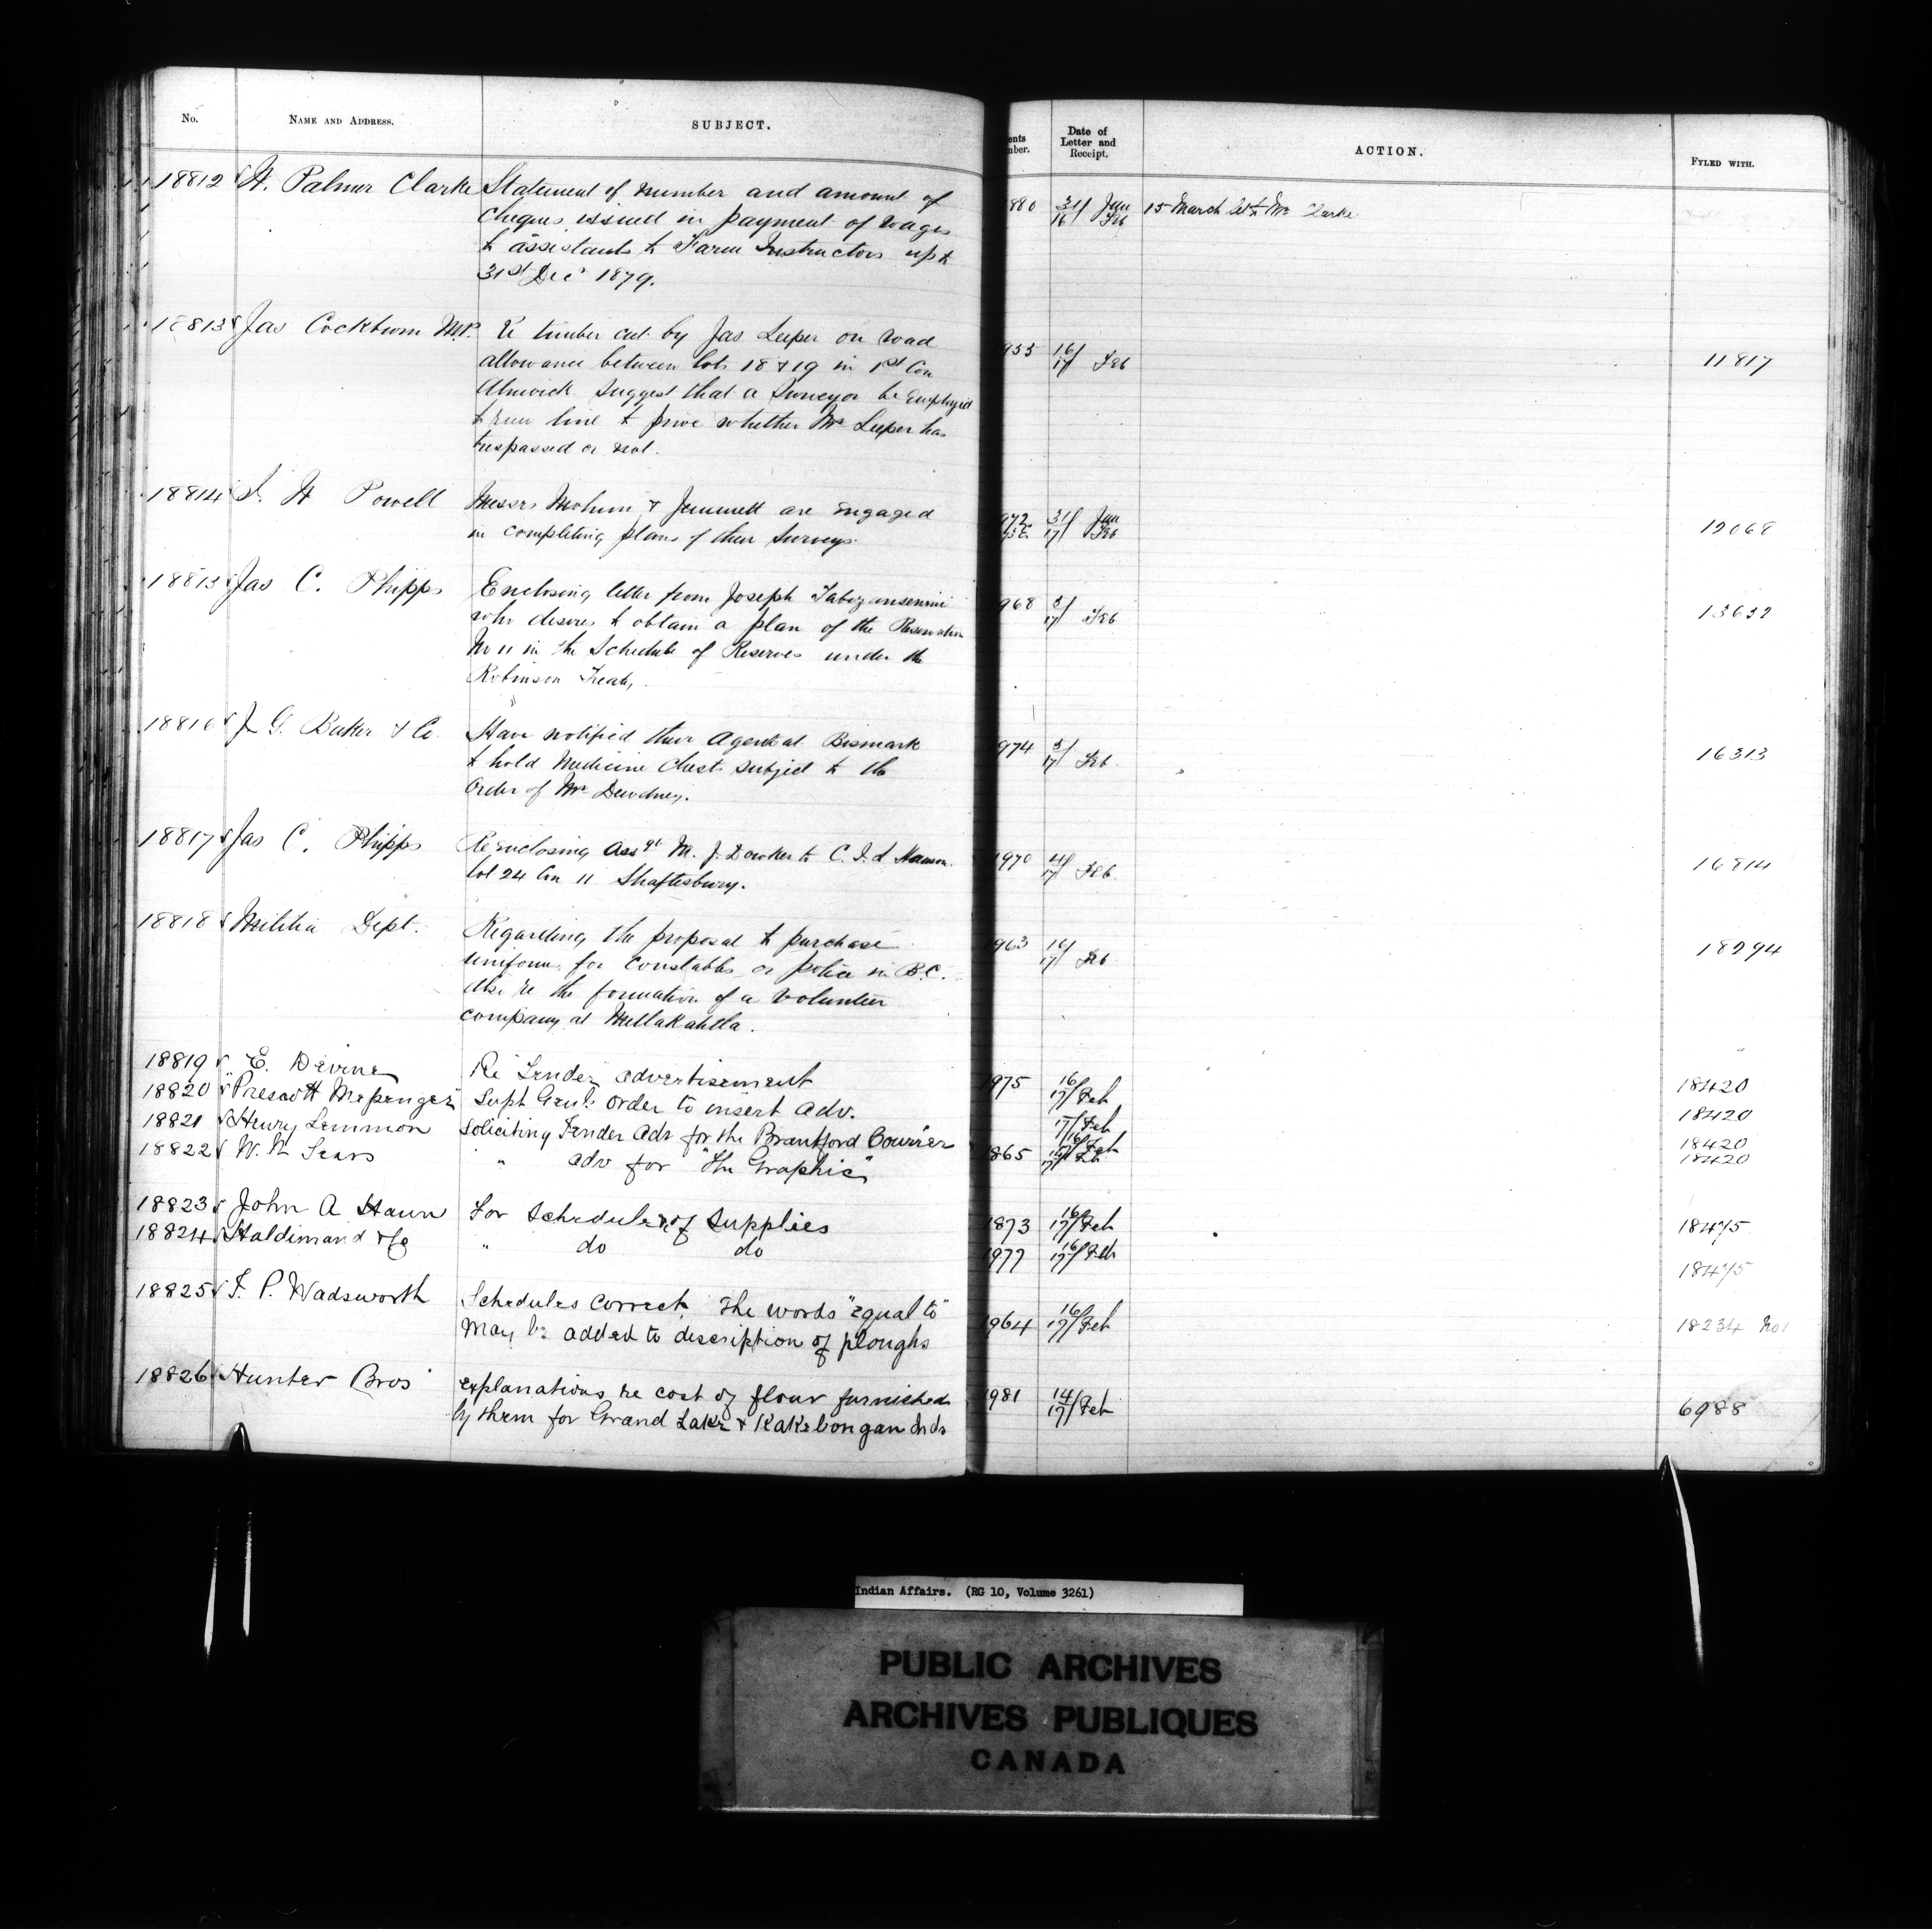 No. NAME AND ADDRESS. SUBJECT.
18812 W. Palmer Clarke Statement of number and amount of
cheques issued in payment of wages
to assistants to Farm Instructors up to
31st Dec 1879.
18813 Jas Cockburn M.P. Re timber cut by Jas Leeper on road
allowance between lots 18 & 19 in 1st Con
Alnwick. Suggest that a Surveyor be employed
to run line to prove whether Mr Leeper has
trespassed or not.
18814 I. W Powell Messrs Mohun & Jemmett are engaged
in completing plans of their Surveys.
18815 Jas C. Phipps Enclosing letter from Joseph
who desires to obtain a plan of the Reservation
No 11 in the Schedule of Reserves under the
Robinson Treaty.
18816 J G. Baker & Co. Have notified their Agent at Bismark
to hold Medicine Chests subject to the
Order of Mr Dewdney.
18817 Jas C. Phipps Re enclosing Assgt M. J. Dowker to C. I. L
lot 24 Con 11 Shaftesbury.
18818 Militia Dept. Regarding the proposal to purchase
uniforms for Constables or police in B.C.
Also re the formation of a Volunteer
company at Metlakahtla.
18819 E. Devine Re Tender advertisement
18820 "Prescott Messenger" Supt Genls order to insert adv.
18821 Henry Lemmon Soliciting Tender Adv for the Brantford Courier
18822 W. N Sears " adv for "The Graphic"
18823 John A Haun For Schedules of Supplies
18824 Haldimand & Co " do do
18825 T. P. Wadsworth Schedules correct. The words "equal to"
may be added to description of ploughs
18826 Hunter Bros explanations re cost of flour furnished
by them for Grand Lake & Kakebongan Inds
ents
mber. Date of
Letter and
Receipt. ACTION. FYLED WITH.
880 31/16 Jan Feb 15 March let to Mr Clarke
955 16/17 Feb 11817
972 31/17 Jan Feb 12068
968 5/17 Feb 13632
974 5/17 Feb. 16313
1970 4/17 Feb. 16814
963 16/17 Feb 18294
1975 16/17 Feb 18420
17/Feb 18420
16/17 Feb 18420
1865 18420
1873 16/17 Feb 18475
1977 16/17 Feb 18475
1964 16/17 Feb 18234 No1
1981 14/17 Feb 6988
Indian Affairs. (RG 10, Volume 3261)
PUBLIC ARCHIVES
ARCHIVES PUBLIQUES
CANADA